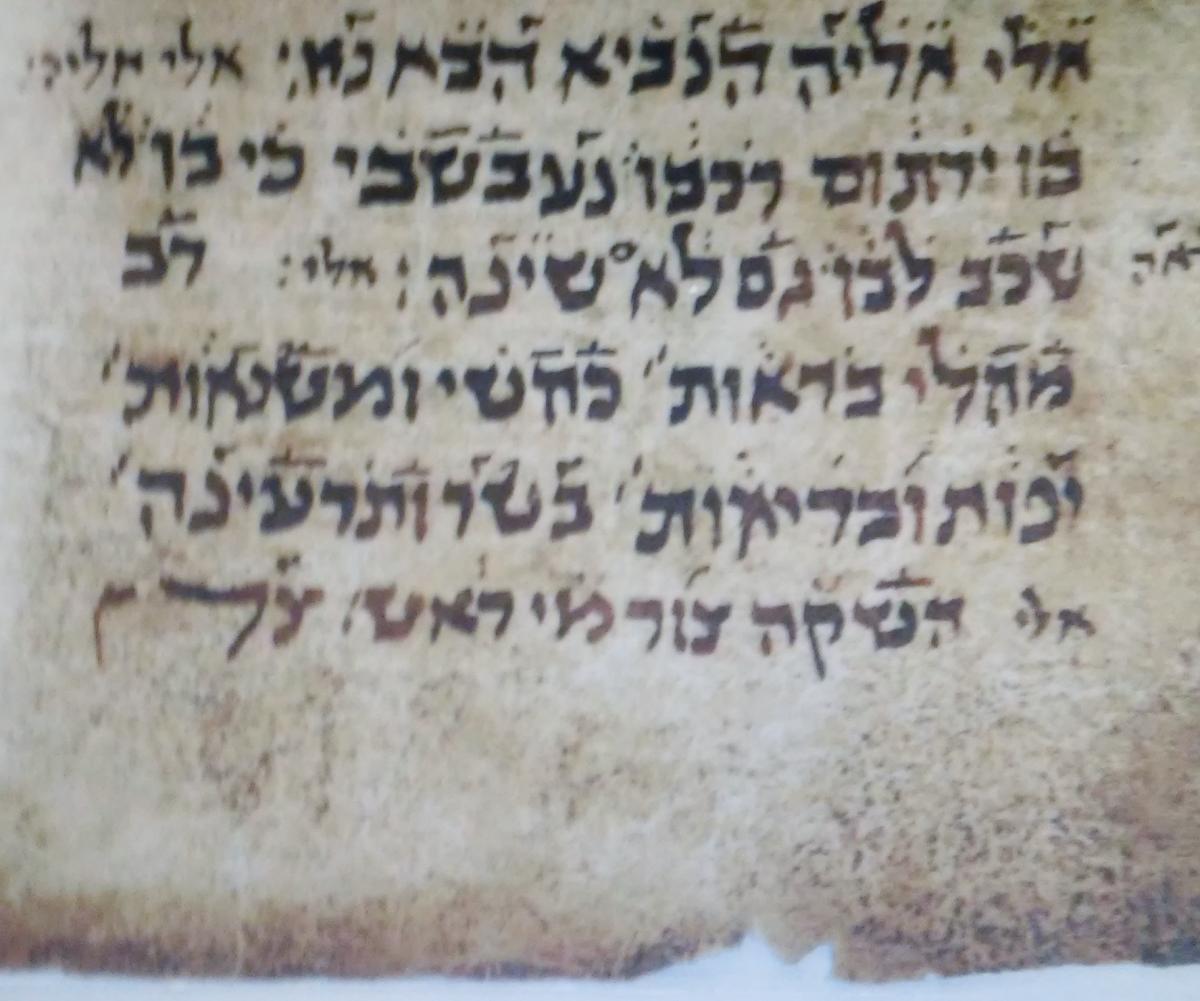 אלי אליה הנביא הבא נא: אלי אליה:
בו ירתום רכבו נע בשבי כי בו לא
שכב לבו גם לא שינה: אלי: רב
מהלי בראות׳ כחשי ומשנאות׳
יכות ובריאות׳ בשר ותרעינה׳
אלי השקה צור מי ראש׳